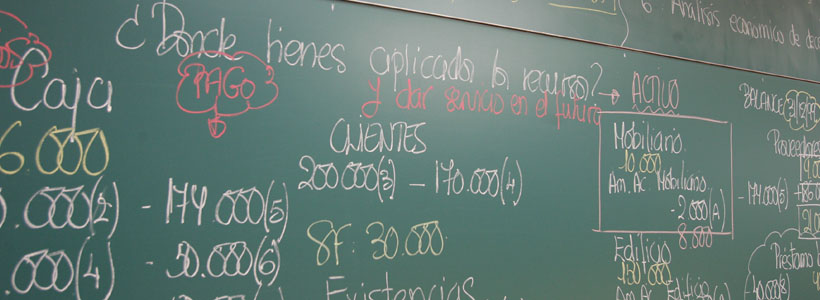 6. Análisis economico de
¿Donde tienes aplicado los recursos? → ACTIVO
PAGO
y dar servicio en el futuro
Caja
6.000
.000(2) - 174.000(5)
.000(4) - 50.000(6)
CLIENTES
200.000(3) - 170.000(4)
SF: 30.000
Existencias
Mobiliario
10.000
Am. Ac. Mobiliario
- 2.000(A)
8.800
Edificio
150.000
Edificio
BALANCE
Proveedores
- 174.000(5)
Préstamo
40.000(8)